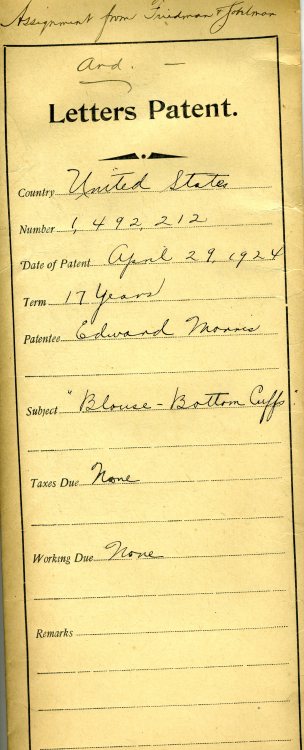 Assignment from Friedman & Gohlman
And. —
Letters Patent.
Country United States
Number 1,492,212
Date of Patent April 29, 1924
Term 17 Years
Patentee Edward Morris
Subject "Blouse-Bottom Cuffs"
Taxes Due None
Working Due None
Remarks